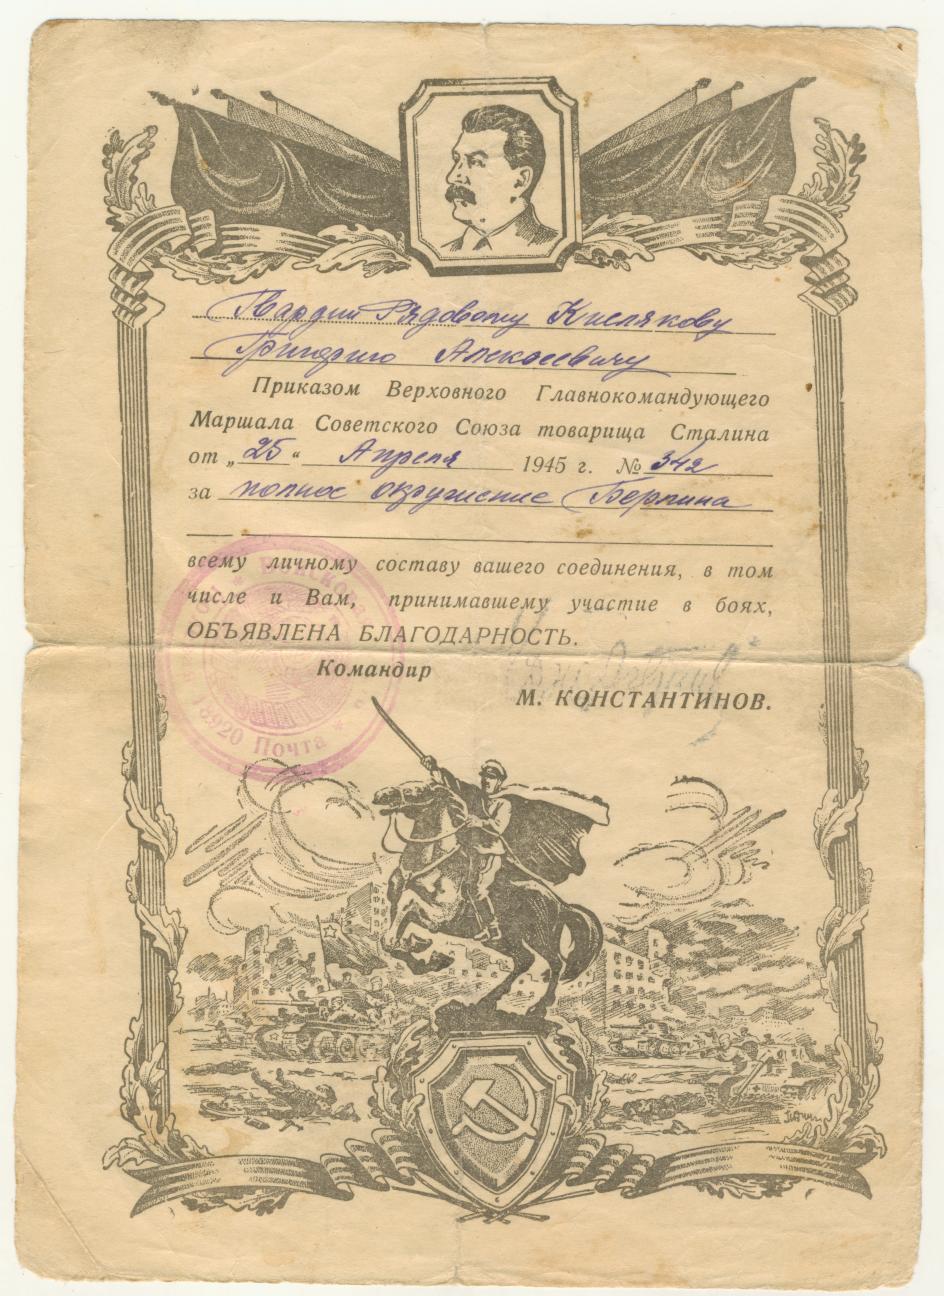 Гвардии Рядовому Кислякову
Григорию Алексеевичу
Приказом Верховного Главнокомандующего
Маршала Советского Союза товарища Сталина
от „25“ Апреля 1945 г. № 342
за полное окружение Берлина
всему личному составу вашего соединения, в том
числе и Вам, принимавшему участие в боях,
ОБЪЯВЛЕНА БЛАГОДАРНОСТЬ.
Командир
М. КОНСТАНТИНОВ.
13920 Почта *